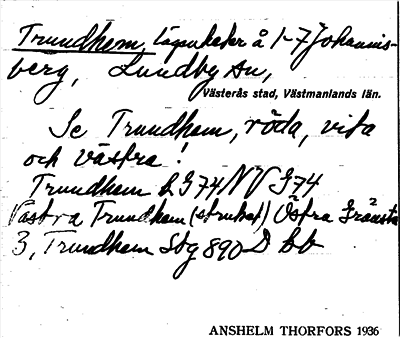 Trundhem, lägenheter å 1-7 Johannis-
berg, Lundby An,
Västerås stad, Västmanlands län.
Se Trundhem, röda, vita
och västra!
Trundhem L G74 NV G74
Västra Trundhem (struket) Östra Gränsta
3, Trundhem Sbg 890 D bb
ANSHELM THORFORS 1936